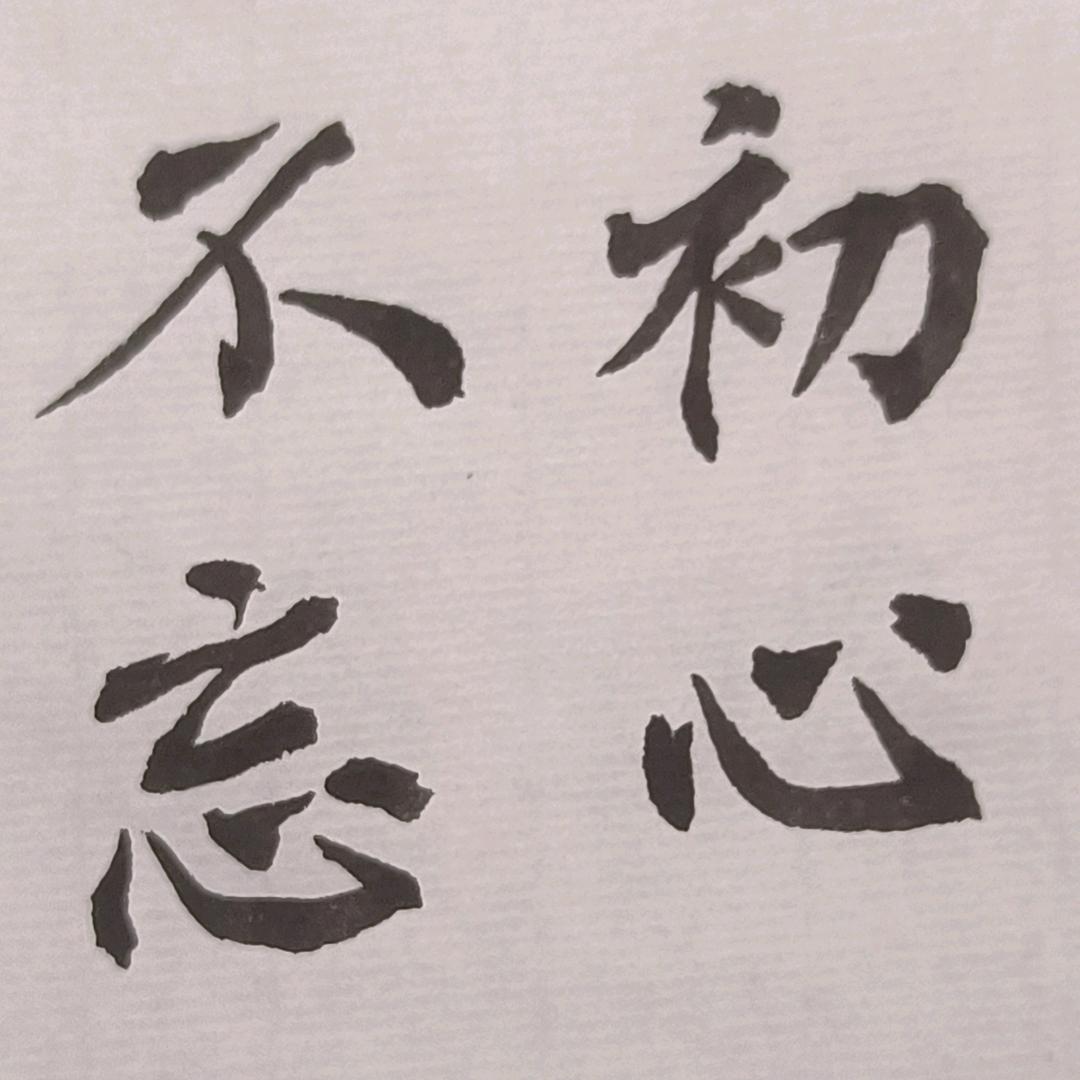 初心
不忘